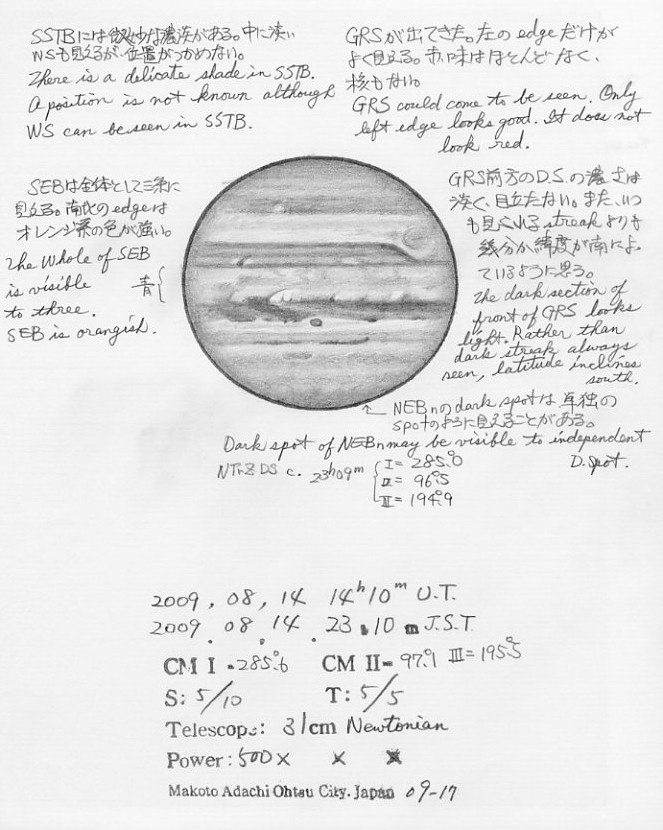 SSTBには微妙な濃淡がある。中に淡い
WSも見えるが、位置がつかめない。
There is a delicate shade in SSTB.
A position is not known although
WS can be seen in SSTB.
GRSが出てきた。左のedgeだけが
よく見える。赤味はほとんどなく、
核もない。
GRS could come to be seen. Only
left edge looks good. It does not
look red.
SEBは全体として三条に
見える。南北のedgeは
オレンジ系の色が強い。
The whole of SEB
is visible
to three.
SEB is orangish.
青{
GRS前方のD.S.の濃さは
淡く、目立たない。また、いつ
も見られるstreakよりも
幾分か緯度が南によっ
ているように思う。
The dark section of
front of GRS looks
light. Rather than
dark streak always
seen, latitude inclines
south.
← NEBnのdark spotは単独の
spotのように見えることがある。
Dark spot of NEBn may be visible to independent
D.spot.
NTrZ DS c. 23h09m { I = 285.°0
II = 96.°5
III = 194.°9
2009, 08, 14 14h10m U.T.
2009. 08. 14. 23 10 m J.S.T.
CM I - 285.°6 CM II - 97.°1 III = 195.°5
S: 5/10 T: 5/5
Telescope: 31cm Newtonian
Power: 500× × ×
Makoto Adachi Ohtsu City. Japan 09-17